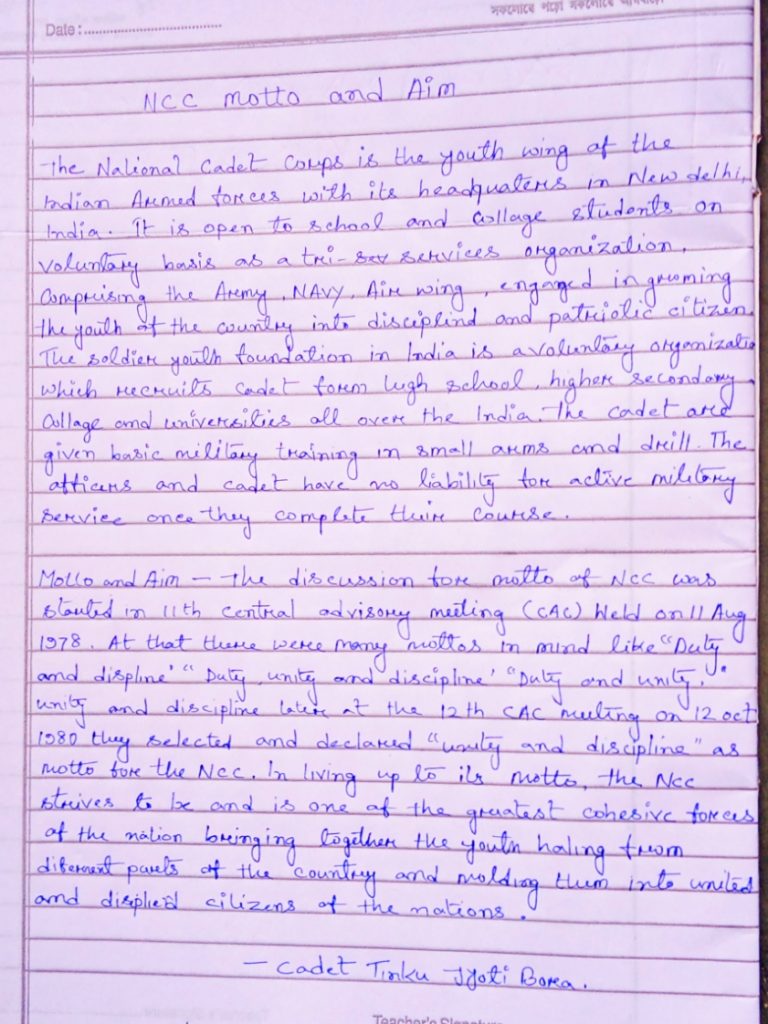 সকলোৱে পঢ়ো সকলোৱে
Date :
NCC motto and Aim
The National Cadet Corps is the youth wing of the
Indian Armed forces with its headquaters in New delhi,
India. It is open to school and collage students on
voluntary basis as a tri- services organization,
Comprising the Army, NAVy, Air wing, engaged in grooming
the youth of the country into disciplind and patriotic citizen.
The soldier youth foundation in India is a voluntary organizatio
which recruits cadet form high school, higher secondary,
Collage and universities all over the India. The cadet are
given basic military training in small arms and drill. The
officers and cadet have no liability for active military
service once they complete their course.
Motto and Aim - The discussion for motto of NCC was
started in 11th central advisory meeting (CAC) Held on 11 Aug
1978. At that there were many mottos in mind like "Duty
and displine" "Duty, unity and discipline" "Duty and unity,"
unity and discipline later at the 12th CAC meeting on 12 oct
1980 they selected and declared "unity and discipline" as
motto for the NCC. In living up to its motto, the NCC
strives to be and is one of the greatest cohesive forces
of the nation bringing together the youth haling from
diferent parts of the country and molding them into united
and displied citizens of the nations.
- Cadet Tinku Jyoti Bora.
Teacher's Signature